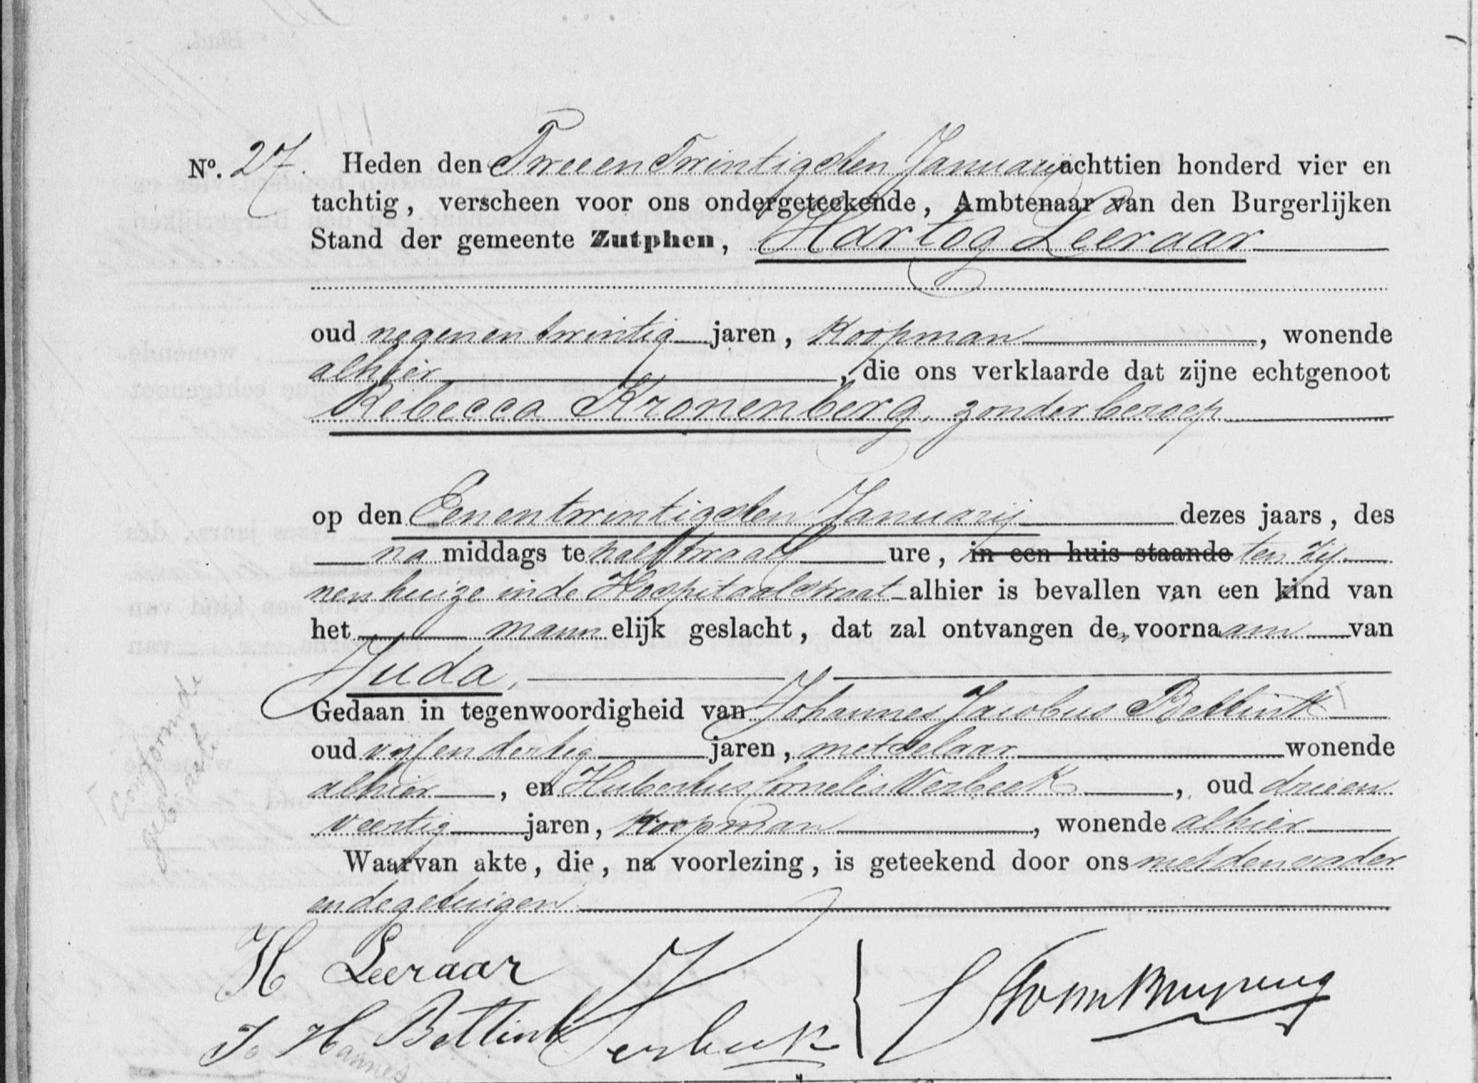 No. 27. Heden den Tweeentwintigsten Januarij achttien honderd vier en
tachtig, verscheen voor ons ondergeteekende, Ambtenaar van den Burgerlijken
Stand der gemeente Zutphen, Hartog Leeraar
oud negenentwintig jaren, Koopman, wonende
alhier, die ons verklaarde dat zijne echtgenoot
Rebecca Kronenberg, zonder beroep
op den Eenentwintigsten Januarij dezes jaars, des
na middags te half twaalf ure, in een huis staande ten zij
nen huize in de Hospitaalstraat alhier is bevallen van een kind van
het mannelijk geslacht, dat zal ontvangen de voornaam van
Juda.
Gedaan in tegenwoordigheid van Johannes Jacobus Bettink
oud vijfendertig jaren, metselaar wonende
alhier, en Hubertus Cornelis Verbeek, oud drieen
veertig jaren, Koopman, wonende alhier
Waarvan akte, die, na voorlezing, is geteekend door ons met den vader
en de getuigen.
H Leeraar
J H Bettink Verbeek